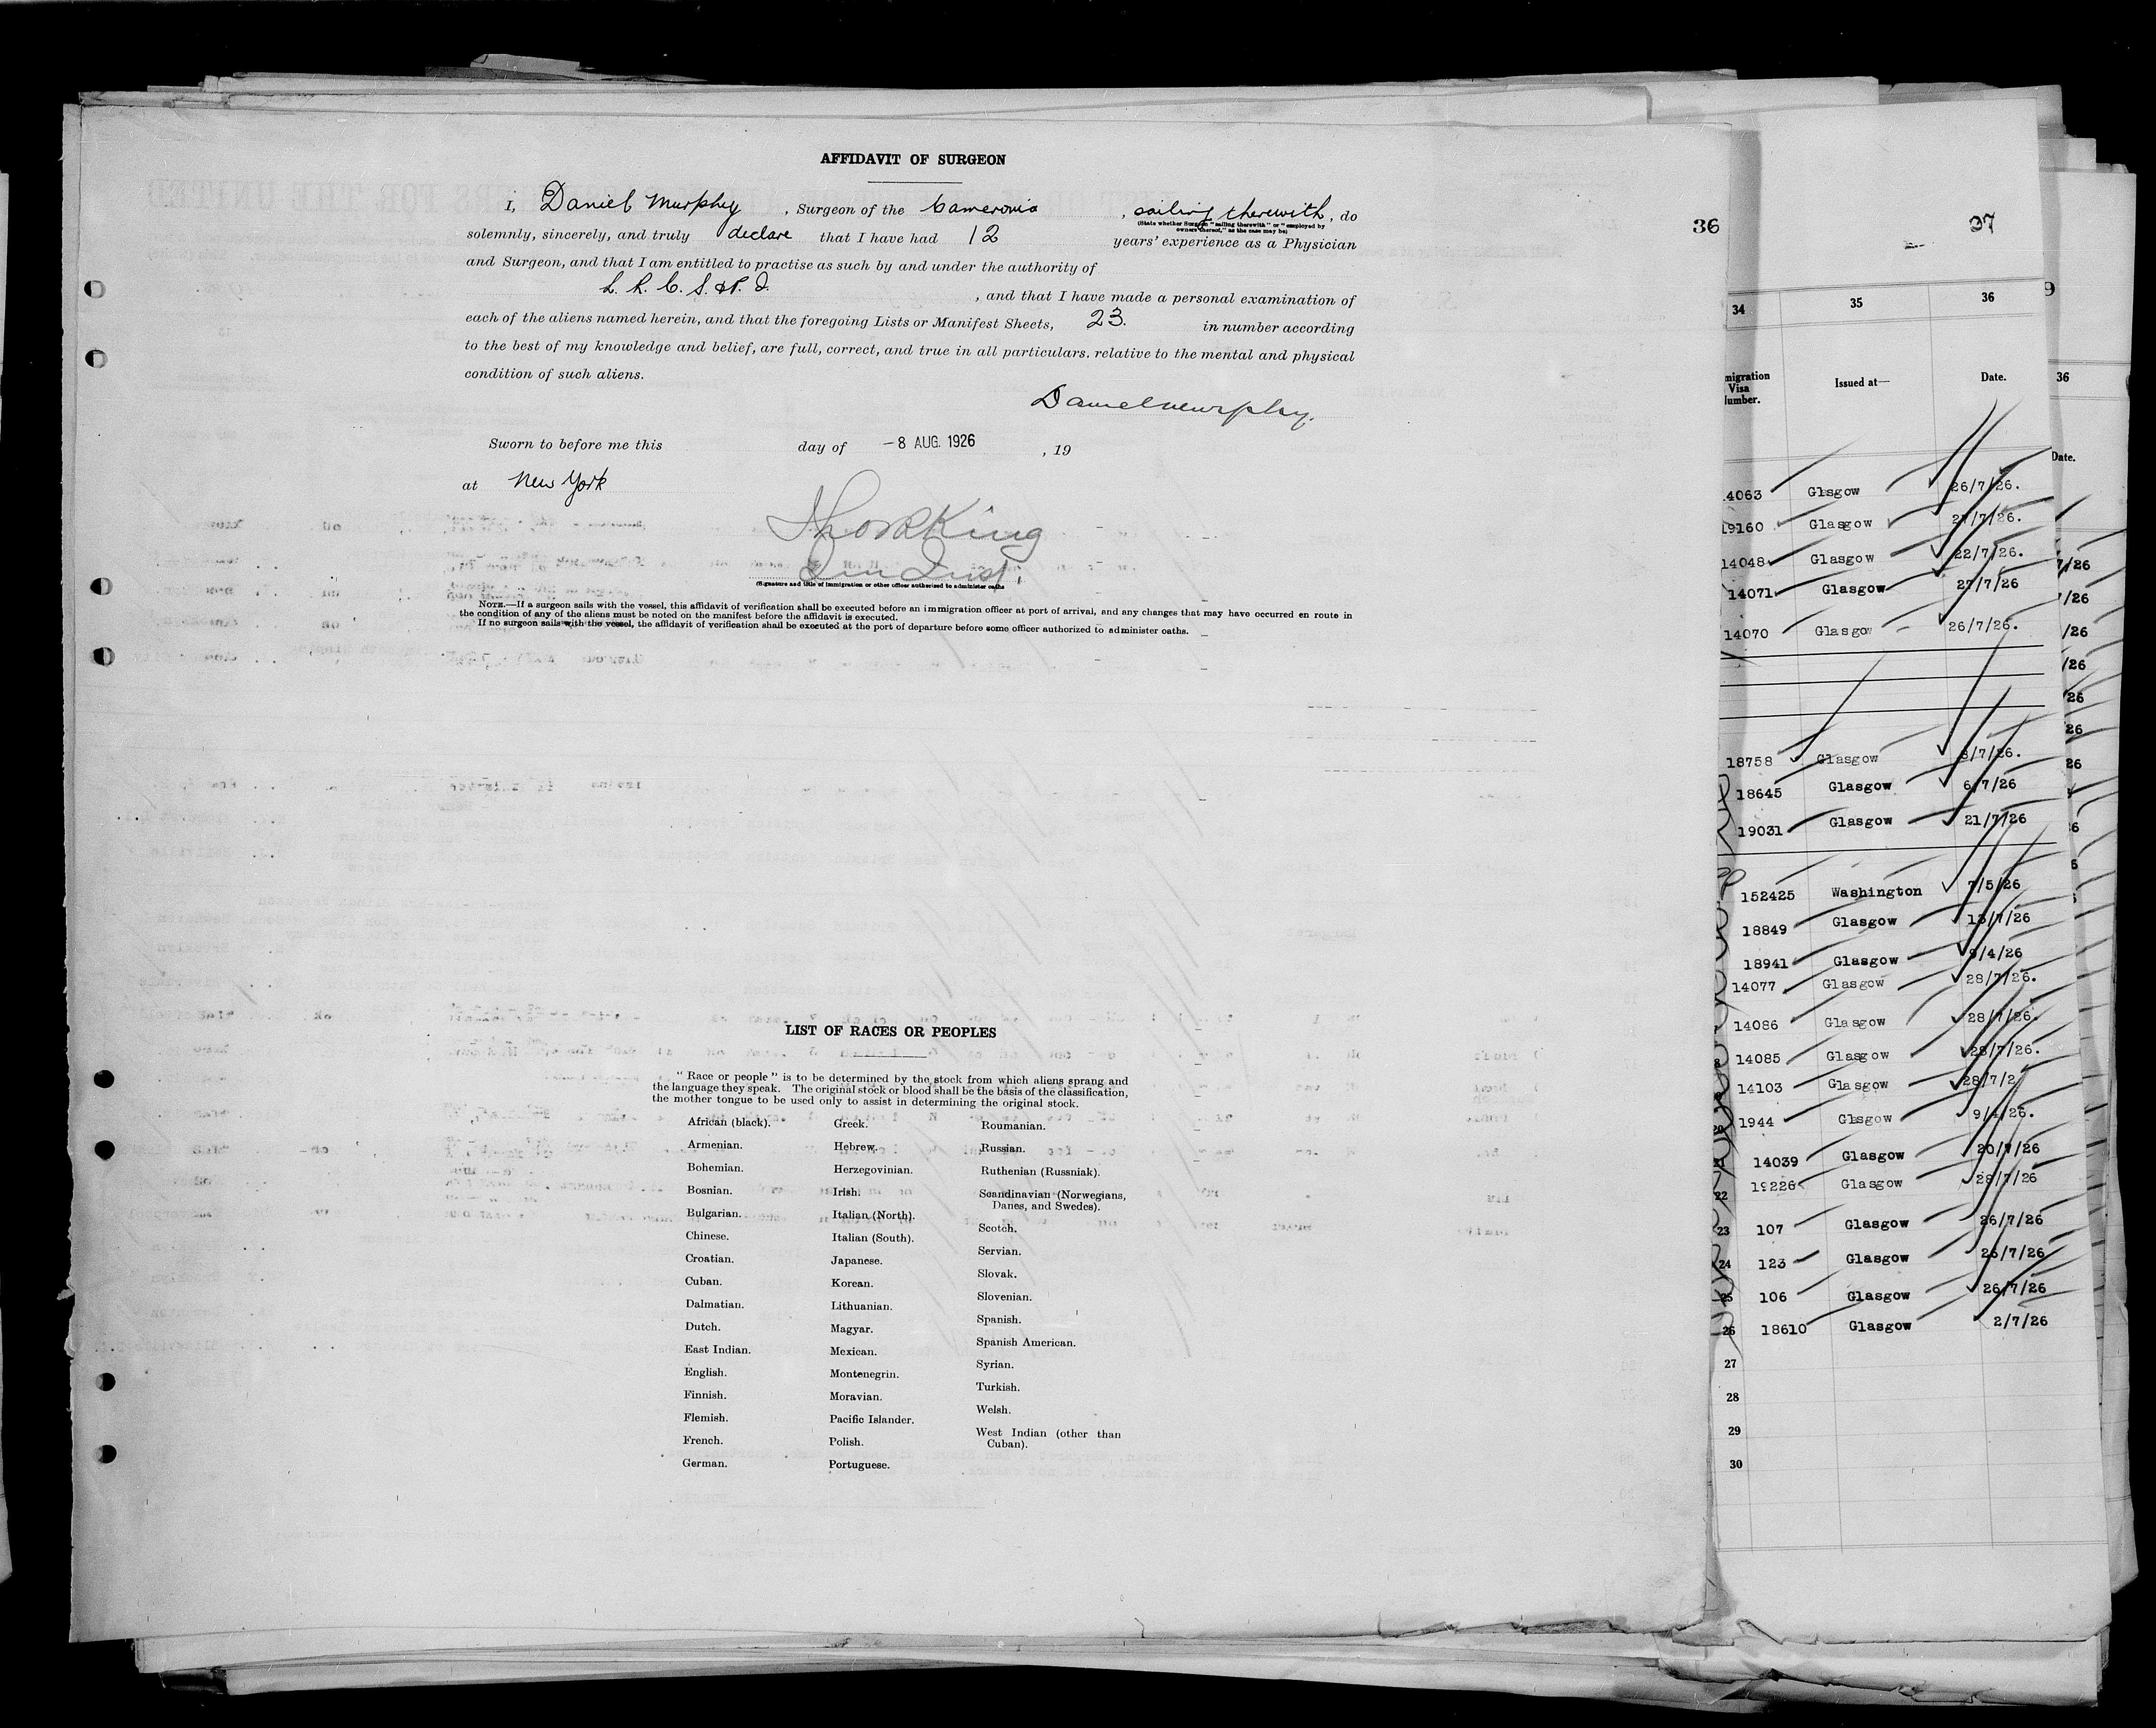 AFFIDAVIT OF SURGEON
I, Daniel Murphy, Surgeon of the Cameronia, sailing therewith, do
(State whether Surgeon "sailing therewith" or "employed by
owners thereof," as the case may be)
solemnly, sincerely, and truly declare that I have had 12 years' experience as a Physician
and Surgeon, and that I am entitled to practise as such by and under the authority of
L. R. C. S. & P. I. , and that I have made a personal examination of
each of the aliens named herein, and that the foregoing Lists or Manifest Sheets, 23. in number according
to the best of my knowledge and belief, are full, correct, and true in all particulars. relative to the mental and physical
condition of such aliens.
Daniel Murphy.
Sworn to before me this day of -8 AUG. 1926 , 19
at New York
Thos R King
Imm Inst.
(Signature and title of immigration or other officer authorized to administer oaths
NOTE.—If a surgeon sails with the vessel, this affidavit of verification shall be executed before an immigration officer at port of arrival, and any changes that may have occurred en route in
the condition of any of the aliens must be noted on the manifest before the affidavit is executed.
If no surgeon sails with the vessel, the affidavit of verification shall be executed at the port of departure before some officer authorized to administer oaths.
LIST OF RACES OR PEOPLES
"Race or people" is to be determined by the stock from which aliens sprang and
the language they speak. The original stock or blood shall be the basis of the classification,
the mother tongue to be used only to assist in determining the original stock.
African (black).
Armenian.
Bohemian.
Bosnian.
Bulgarian.
Chinese.
Croatian.
Cuban.
Dalmatian.
Dutch.
East Indian.
English.
Finnish.
Flemish.
French.
German.
Greek.
Hebrew.
Herzegovinian.
Irish.
Italian (North).
Italian (South).
Japanese.
Korean.
Lithuanian.
Magyar.
Mexican.
Montenegrin.
Moravian.
Pacific Islander.
Polish.
Portuguese.
Roumanian.
Russian.
Ruthenian (Russniak).
Scandinavian (Norwegians,
Danes, and Swedes).
Scotch.
Servian.
Slovak.
Slovenian.
Spanish.
Spanish American.
Syrian.
Turkish.
Welsh.
West Indian (other than
Cuban).
36
37
34 35 36
migration
Visa
Number.
Issued at—
Date.
14063 Glasgow 26/7/26.
19160 Glasgow 27/7/26.
14048 Glasgow 22/7/26.
14071 Glasgow 27/7/26
14070 Glasgow 26/7/26.
18758 Glasgow 8/7/26.
18645 Glasgow 6/7/26
19031 Glasgow 21/7/26
152425 Washington 7/5/26
18849 Glasgow 13/7/26
18941 Glasgow 9/4/26
14077 Glasgow 28/7/26.
14086 Glasgow 28/7/26.
14085 Glasgow 28/7/26.
14103 Glasgow 28/7/2
1944 Glasgow 9/4/26.
21 14039 Glasgow 20/7/26
22 19226 Glasgow 28/7/26
23 107 Glasgow 26/7/26
24 123 Glasgow 26/7/26
25 106 Glasgow 26/7/26
26 18610 Glasgow 2/7/26
27
28
29
30
9
36
Date.
7/26
/26
/26
/26
26
26
26